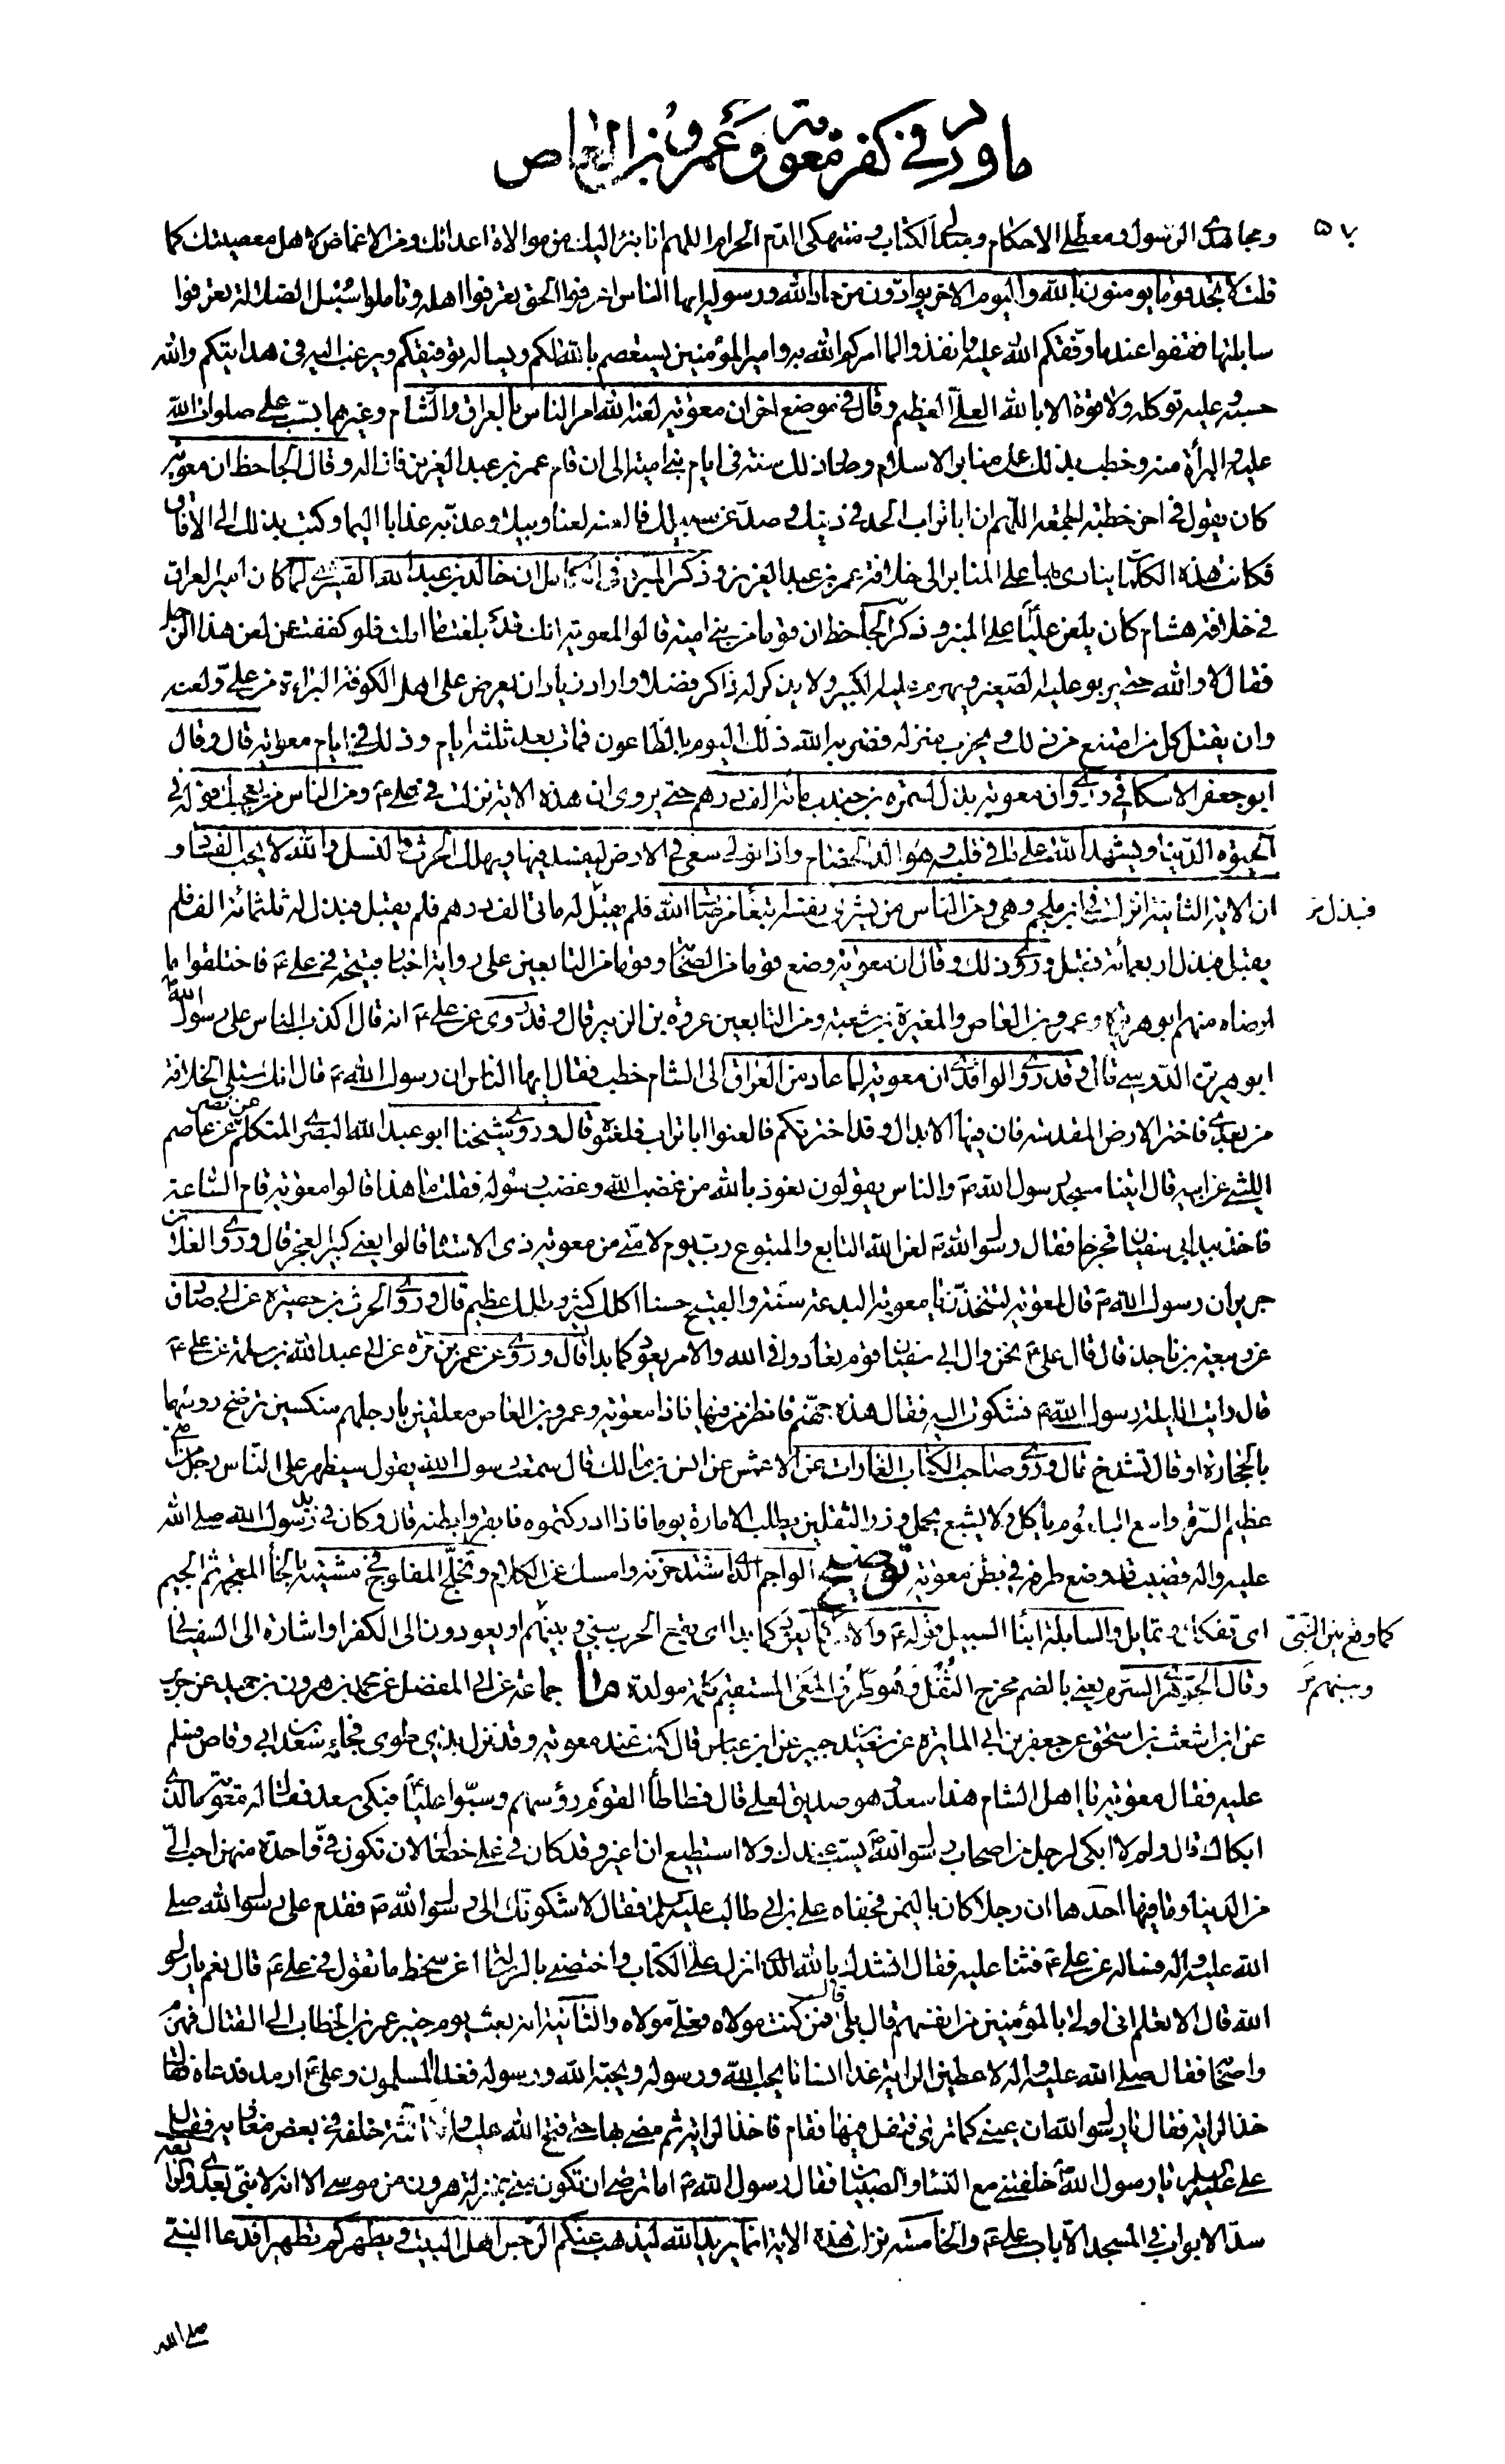 ما ورد في كفر معوية وعمرو بن العاص
٥٧
ومجاهدي الرسول ومعطلي الاحكام ومبدلي الكتاب ومنتهكي الدم الحرام اللهم انا نبرأ اليك من موالاة اعدائك ومن الاغماض لاهل معصيتك كما
قلت لا تجد قوما يومنون بالله واليوم الاخر يوادون من حاد الله ورسوله ايها الناس اعرفوا الحق تعرفوا اهله وتاملوا سبل الضلالة تعرفوا
سابلتها فقفوا عند ما وقفكم الله عليه وانفذوا لما امركم الله به وامير المؤمنين يستعصم بالله لكم ويساله توفيقكم ويرغب اليه في هدايتكم والله
حسبه وعليه توكله ولا قوة الا بالله العلي العظيم وقال في موضع اخر ان معوية لعنه الله امر الناس بالعراق والشام وغيرهما بسب علي صلوات الله
عليه والبرأة منه وخطب بذلك على منابر الاسلام وصار ذلك سنة في ايام بني امية الى ان قام عمر بن عبد العزيز فازاله وقال الجاحظ ان معوية
كان يقول في اخر خطبته الجمعة اللهم ان ابا تراب الحد في دينك وصد عن سبيلك فالعنه لعنا وبيلا وعذبه عذابا اليما وكتب بذلك الى الآفاق
فكانت هذه الكلمات ينادى بها على المنابر الى خلافة عمر بن عبد العزيز وذكر المبرد في الكامل ان خالد بن عبد الله القسري لما كان امير العراق
في خلافة هشام كان يلعن عليا على المنبر وذكر الجاحظ ان قوما من بني امية قالوا لمعوية انك قد بلغت ما املت فلو كففت عن لعن هذا الرجل
فقال لا والله حتى يربو عليه الصغير ويهرم عليه الكبير ولا يذكر له ذاكر فضلا واراد زياد ان يعرض على اهل الكوفة البراءة من علي ولعنه
وان يقتل كل من امتنع من ذلك ويخرب منزله فضربه الله ذلك اليوم بالطاعون فمات بعد ثلثة ايام وذلك في ايام معوية قال وقال
ابو جعفر الاسكافي وروي ان معوية بذل لسمرة بن جندب مائة الف درهم حتى يروي ان هذه الاية نزلت في علي ع ومن الناس من يعجبك قوله في
الحيوة الدنيا ويشهد الله على ما في قلبه وهو الد الخصام واذا تولى سعى في الارض ليفسد فيها ويهلك الحرث والنسل والله لا يحب الفساد و
ان الاية الثانية انزلت في ابن ملجم وهي ومن الناس من يشري نفسه ابتغاء مرضات الله فلم يقبل له مائتي الف درهم فلم يقبل فبذل له ثلثمائة الف فلم
فبذل
يقبل فبذل اربعمائة فقبل وروى ذلك وقال ان معوية وضع قوما من الصحابة وقوما من التابعين على رواية اخبار قبيحة في علي ع فاختلقوا ما
ارضاه منهم ابو هريرة وعمرو بن العاص والمغيرة بن شعبة ومن التابعين عروة بن الزبير قال وقد روى عن علي ع انه قال اكذب الناس على رسول الله
ابو هريرة الدوسي قال وقد روى الواقدي ان معوية لما عاد من العراق الى الشام خطب فقال ايها الناس ان رسول الله ص قال انك ستلي الخلافة
من بعدي فاختر الارض المقدسة فان فيها الابدال وقد اخترتكم فالعنوا ابا تراب فلعنوه قال وروى شيخنا ابو عبد الله البصري المتكلم عن نصر بن عاصم
الليثي عن ابيه قال اتينا مسجد رسول الله ص والناس يقولون نعوذ بالله من غضب الله وغضب رسوله فقلت ما هذا قالوا معوية قام الساعة
فاخذ بيد ابي سفيان فخرجا فقال رسول الله ص لعن الله التابع والمتبوع رب يوم لامتي من معوية ذي الاستاه قالوا يعني كبير العجز قال وروى العلاء بن
جرير ان رسول الله ص قال لمعوية لتتخذن يا معوية البدعة سنة والقبيح حسنا اكلك كثير وظلمك عظيم قال وروى الحرث بن حصيرة عن ابي صادق
عن ربيعة بن ناجد قال قال علي ع نحن وال ابي سفيان قوم تعادوا في الله والامر يعود كما بدا قال وروى عن عمرو بن مرة عن ابي عبد الله بن سلمة عن علي ع
قال رايت الليلة رسول الله ص فشكوت اليه فقال هذه جهنم فانظر من فيها فاذا معوية وعمرو بن العاص معلقين بارجلهم منكسين ترضخ رؤسهما
بالحجارة او قال تشدخ قال وروى صاحب الكتاب الغارات عن الاعمش عن انس بن مالك قال سمعت رسول الله يقول سيظهر على الناس رجل من امتي
عظيم السرة واسع البلعوم ياكل ولا يشبع يحمل وزر الثقلين يطلب الامارة يوما فاذا ادركتموه فابقروا بطنه قال وكان في يد رسول الله صلى الله
عليه واله قضيب قد وضع طرفه في بطن معوية توضيح الواجم الذي اشتد حزنه وامسك عن الكلام وتخلج المفلوج في مشيته بالخاء المعجمة ثم الجيم
اي تفكك وتمايل والسابلة ابناء السبيل وقوله ع والامر يعود كما بدا اي يقع الحرب بيني وبينهم او يعودون الى الكفر او اشارة الى السفياني
كما وقع بين النبي
وبينهم
وقال الجوهري السرم يعني بالضم مخرج الثفل وهو طرف المعى المستقيم كلمة مولدة ما جماعة عن ابي المفضل عن محمد بن هرون بن حميد عن جرير
عن اشعث بن اسحق عن جعفر بن ابي المغيرة عن سعيد بن جبير عن ابن عباس قال كنت عند معوية وقد نزل بذي طوى فجاءه سعد بن ابي وقاص فسلم
عليه فقال معوية يا اهل الشام هذا سعد وهو صديق لعلي قال فطاطأ القوم رؤسهم وسبوا عليا فبكى سعد فقال له معوية ما الذي
ابكاك قال ولم لا ابكي لرجل من اصحاب رسول الله يسب عندك ولا استطيع ان اغير وقد كان في علي خصال لان تكون في واحدة منهن احب الي
من الدنيا وما فيها احدها ان رجلا كان باليمن فجفاه علي بن ابي طالب عليه السلام فقال لاشكونك الى رسول الله ص فقدم على رسول الله صلى
الله عليه واله فساله عن علي ع فثنا عليه فقال انشدك بالله الذي انزل علي الكتاب واختصني بالرسالة اعن سخط ما تقول في علي ع قال نعم يا رسول
الله قال الا تعلم اني اولى بالمؤمنين من انفسهم قال بلى قال فمن كنت مولاه فعلي مولاه والثانية انه بعث يوم خيبر عمر بن الخطاب الى القتال فهزم
واصحابه فقال صلى الله عليه واله لاعطين الراية غدا انسانا يحب الله ورسوله ويحبه الله ورسوله فغدا المسلمون وعلي ع ارمد فدعاه فقال
خذ الراية فقال يا رسول الله ان عيني كما ترى فتفل فيها فقام فاخذ الراية ثم مضى بها حتى فتح الله عليه والثالثة خلفه في بعض مغازيه فقال
علي عليه السلام يا رسول الله خلفتني مع النساء والصبيان فقال رسول الله ص اما ترضى ان تكون مني بمنزلة هرون من موسى الا انه لا نبي بعدي والرابعة
سد الابواب في المسجد الا باب علي ع والخامسة نزلت هذه الاية انما يريد الله ليذهب عنكم الرجس اهل البيت ويطهركم تطهيرا فدعا النبي
صلى الله